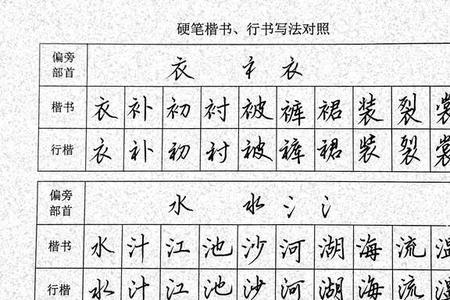 硬笔楷书、行书写法对照
偏旁部首 衣 衤 衣
楷书 衣 补 初 衬 被 裤 裙 装 裂 裳
行楷 衣 补 初 衬 被 裤 裙 装 裂 裳
偏旁部首 水 水 氵 氵
楷书 水 汁 江 池 沙 河 湖 海 流 温
行楷 水 汁 江 池 沙 河 湖 海 流 温